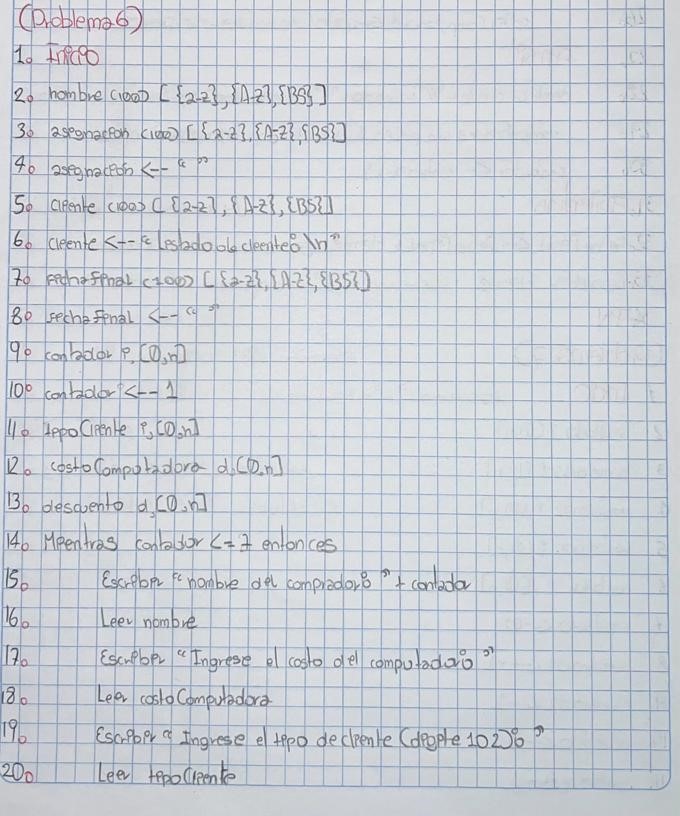 (Problema 6)
1. Inicio
2. nombre c(100) [{a-z},{A-Z},{BS}]
3. asignacion c(100) [{a-z},{A-Z},{BS}]
4. asignacion <-- " "
5. cliente c(100) [{a-z},{A-Z},{BS}]
6. cliente <-- "Listado de cliente: \n"
7. fechafinal c(100) [{a-z},{A-Z},{BS}]
8. fechafinal <-- " "
9. contador i, [0,n]
10. contador <-- 1
11. tipoCliente i, [0,n]
12. costoComputadora d, [0,n]
13. descuento d, [0,n]
14. Mientras contador <= 7 entonces
15. Escribir "nombre del comprador: " + contador
16. Leer nombre
17. Escribir "Ingrese el costo del computador: "
18. Leer costoComputadora
19. Escribir "Ingrese el tipo de cliente (digite 1 o 2): "
20. Leer tipoCliente